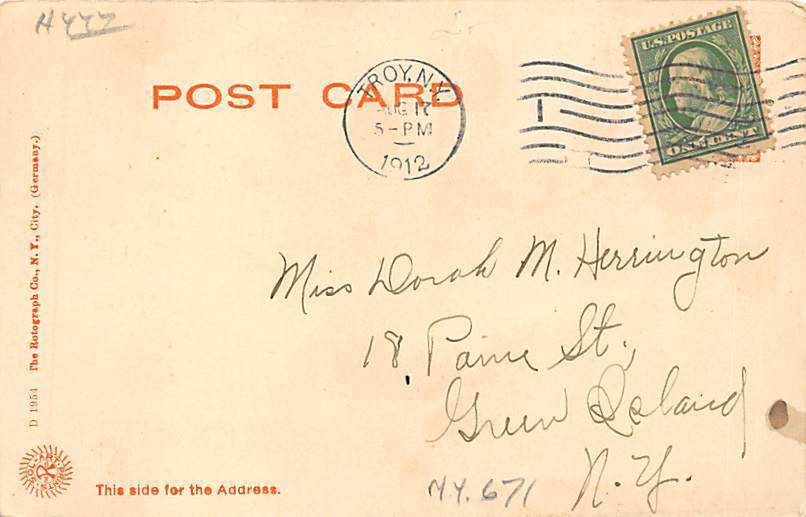 H477
U.S. POSTAGE
ONE CENT
POST CARD
TROY, N.Y.
AUG 17
5-PM
1912
D 1954 The Rotograph Co., N. Y., City. (Germany.)
Miss Dorah M. Herrington
18 Paine St.,
Green Island
N.Y.
SOL-ART PRINTS
This side for the Address.
NY. 671